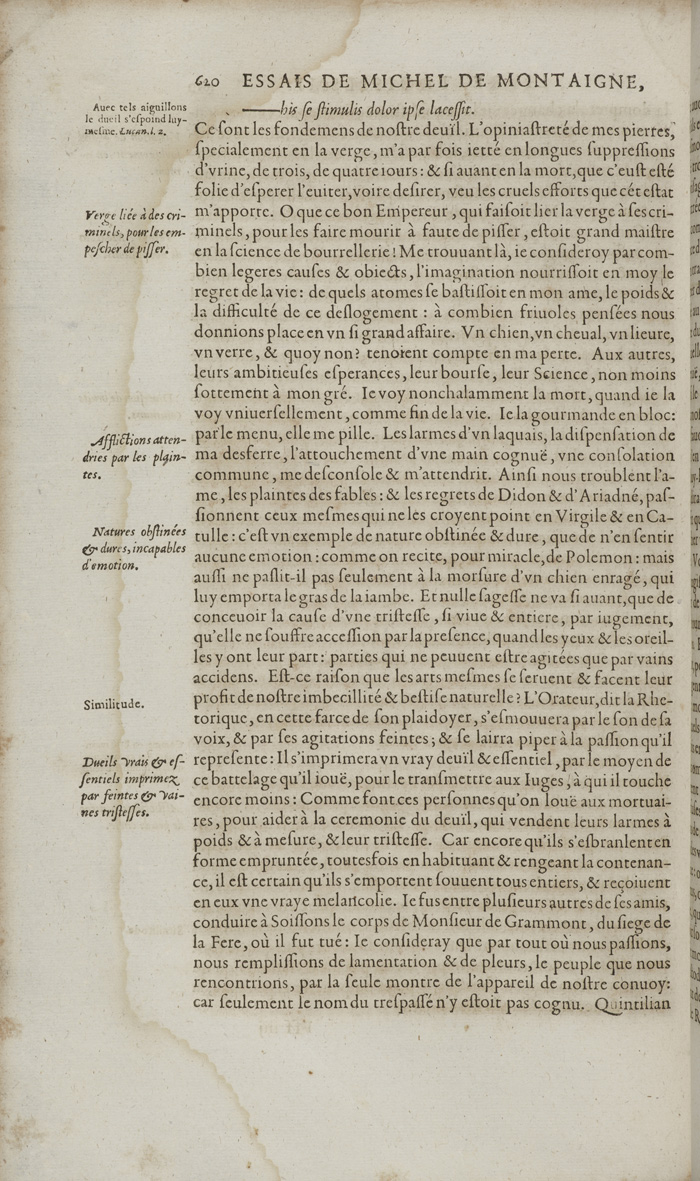 620 ESSAIS DE MICHEL DE MONTAIGNE,
Auec tels aiguillons
le dueil s'eſpoind luy-
meſme. Lucan. l. 2.
——his ſe ſtimulis dolor ipſe laceſſit.
Ce ſont les fondemens de noſtre deuïl. L'opiniaſtreté de mes pierres,
ſpecialement en la verge, m'a par fois ietté en longues ſuppreſſions
d'vrine, de trois, de quatre iours: & ſi auant en la mort, que c'euſt eſté
folie d'eſperer l'euiter, voire deſirer, veu les cruels efforts que cét eſtat
m'apporte. O que ce bon Empereur, qui faiſoit lier la verge à ſes cri-
minels, pour les faire mourir à faute de piſſer, eſtoit grand maiſtre
en la ſcience de bourrellerie! Me trouuant là, ie conſideroy par com-
bien legeres cauſes & obiects, l'imagination nourriſſoit en moy le
regret de la vie: de quels atomes ſe baſtiſſoit en mon ame, le poids &
la difficulté de ce deſlogement: à combien friuoles penſées nous
donnions place en vn ſi grand affaire. Vn chien, vn cheual, vn lieure,
vn verre, & quoy non? tenoient compte en ma perte. Aux autres,
leurs ambitieuſes eſperances, leur bourſe, leur Science, non moins
ſottement à mon gré. Ie voy nonchalamment la mort, quand ie la
voy vniuerſellement, comme fin de la vie. Ie la gourmande en bloc:
par le menu, elle me pille. Les larmes d'vn laquais, la diſpenſation de
ma desferre, l'attouchement d'vne main cognuë, vne conſolation
commune, me deſconſole & m'attendrit. Ainſi nous troublent l'a-
me, les plaintes des fables: & les regrets de Didon & d'Ariadné, paſ-
ſionnent ceux meſmes qui ne les croyent point en Virgile & en Ca-
tulle: c'eſt vn exemple de nature obſtinée & dure, que de n'en ſentir
aucune emotion: comme on recite, pour miracle, de Polemon: mais
auſſi ne paſlit-il pas ſeulement à la morſure d'vn chien enragé, qui
luy emporta le gras de la iambe. Et nulle ſageſſe ne va ſi auant, que de
conceuoir la cauſe d'vne triſteſſe, ſi viue & entiere, par iugement,
qu'elle ne ſouffre acceſſion par la preſence, quand les yeux & les oreil-
les y ont leur part: parties qui ne peuuent eſtre agitées que par vains
accidens. Eſt-ce raiſon que les arts meſmes ſe ſeruent & facent leur
profit de noſtre imbecillité & beſtiſe naturelle? L'Orateur, dit la Rhe-
torique, en cette farce de ſon plaidoyer, s'eſmouuera par le ſon de ſa
voix, & par ſes agitations feintes; & ſe lairra piper à la paſſion qu'il
repreſente: Il s'imprimera vn vray deuïl & eſſentiel, par le moyen de
ce battelage qu'il iouë, pour le tranſmettre aux Iuges, à qui il touche
encore moins: Comme font ces perſonnes qu'on louë aux mortuai-
res, pour aider à la ceremonie du deuïl, qui vendent leurs larmes à
poids & à meſure, & leur triſteſſe. Car encore qu'ils s'eſbranlent en
forme empruntée, toutesfois en habituant & rengeant la contenan-
ce, il eſt certain qu'ils s'emportent ſouuent tous entiers, & reçoiuent
en eux vne vraye melancolie. Ie fus entre pluſieurs autres de ſes amis,
conduire à Soiſſons le corps de Monſieur de Grammont, du ſiege de
la Fere, où il fut tué: Ie conſideray que par tout où nous paſſions,
nous rempliſſions de lamentation & de pleurs, le peuple que nous
rencontrions, par la ſeule montre de l'appareil de noſtre conuoy:
car ſeulement le nom du treſpaſſé n'y eſtoit pas cognu. Quintilian
Verge liée à des cri-
minels, pour les em-
peſcher de piſſer.
Afflictions atten-
dries par les plain-
tes.
Natures obſtinées
& dures, incapables
d'emotion.
Similitude.
Dueils vrais & eſ-
ſentiels imprimez
par feintes & vai-
nes triſteſſes.